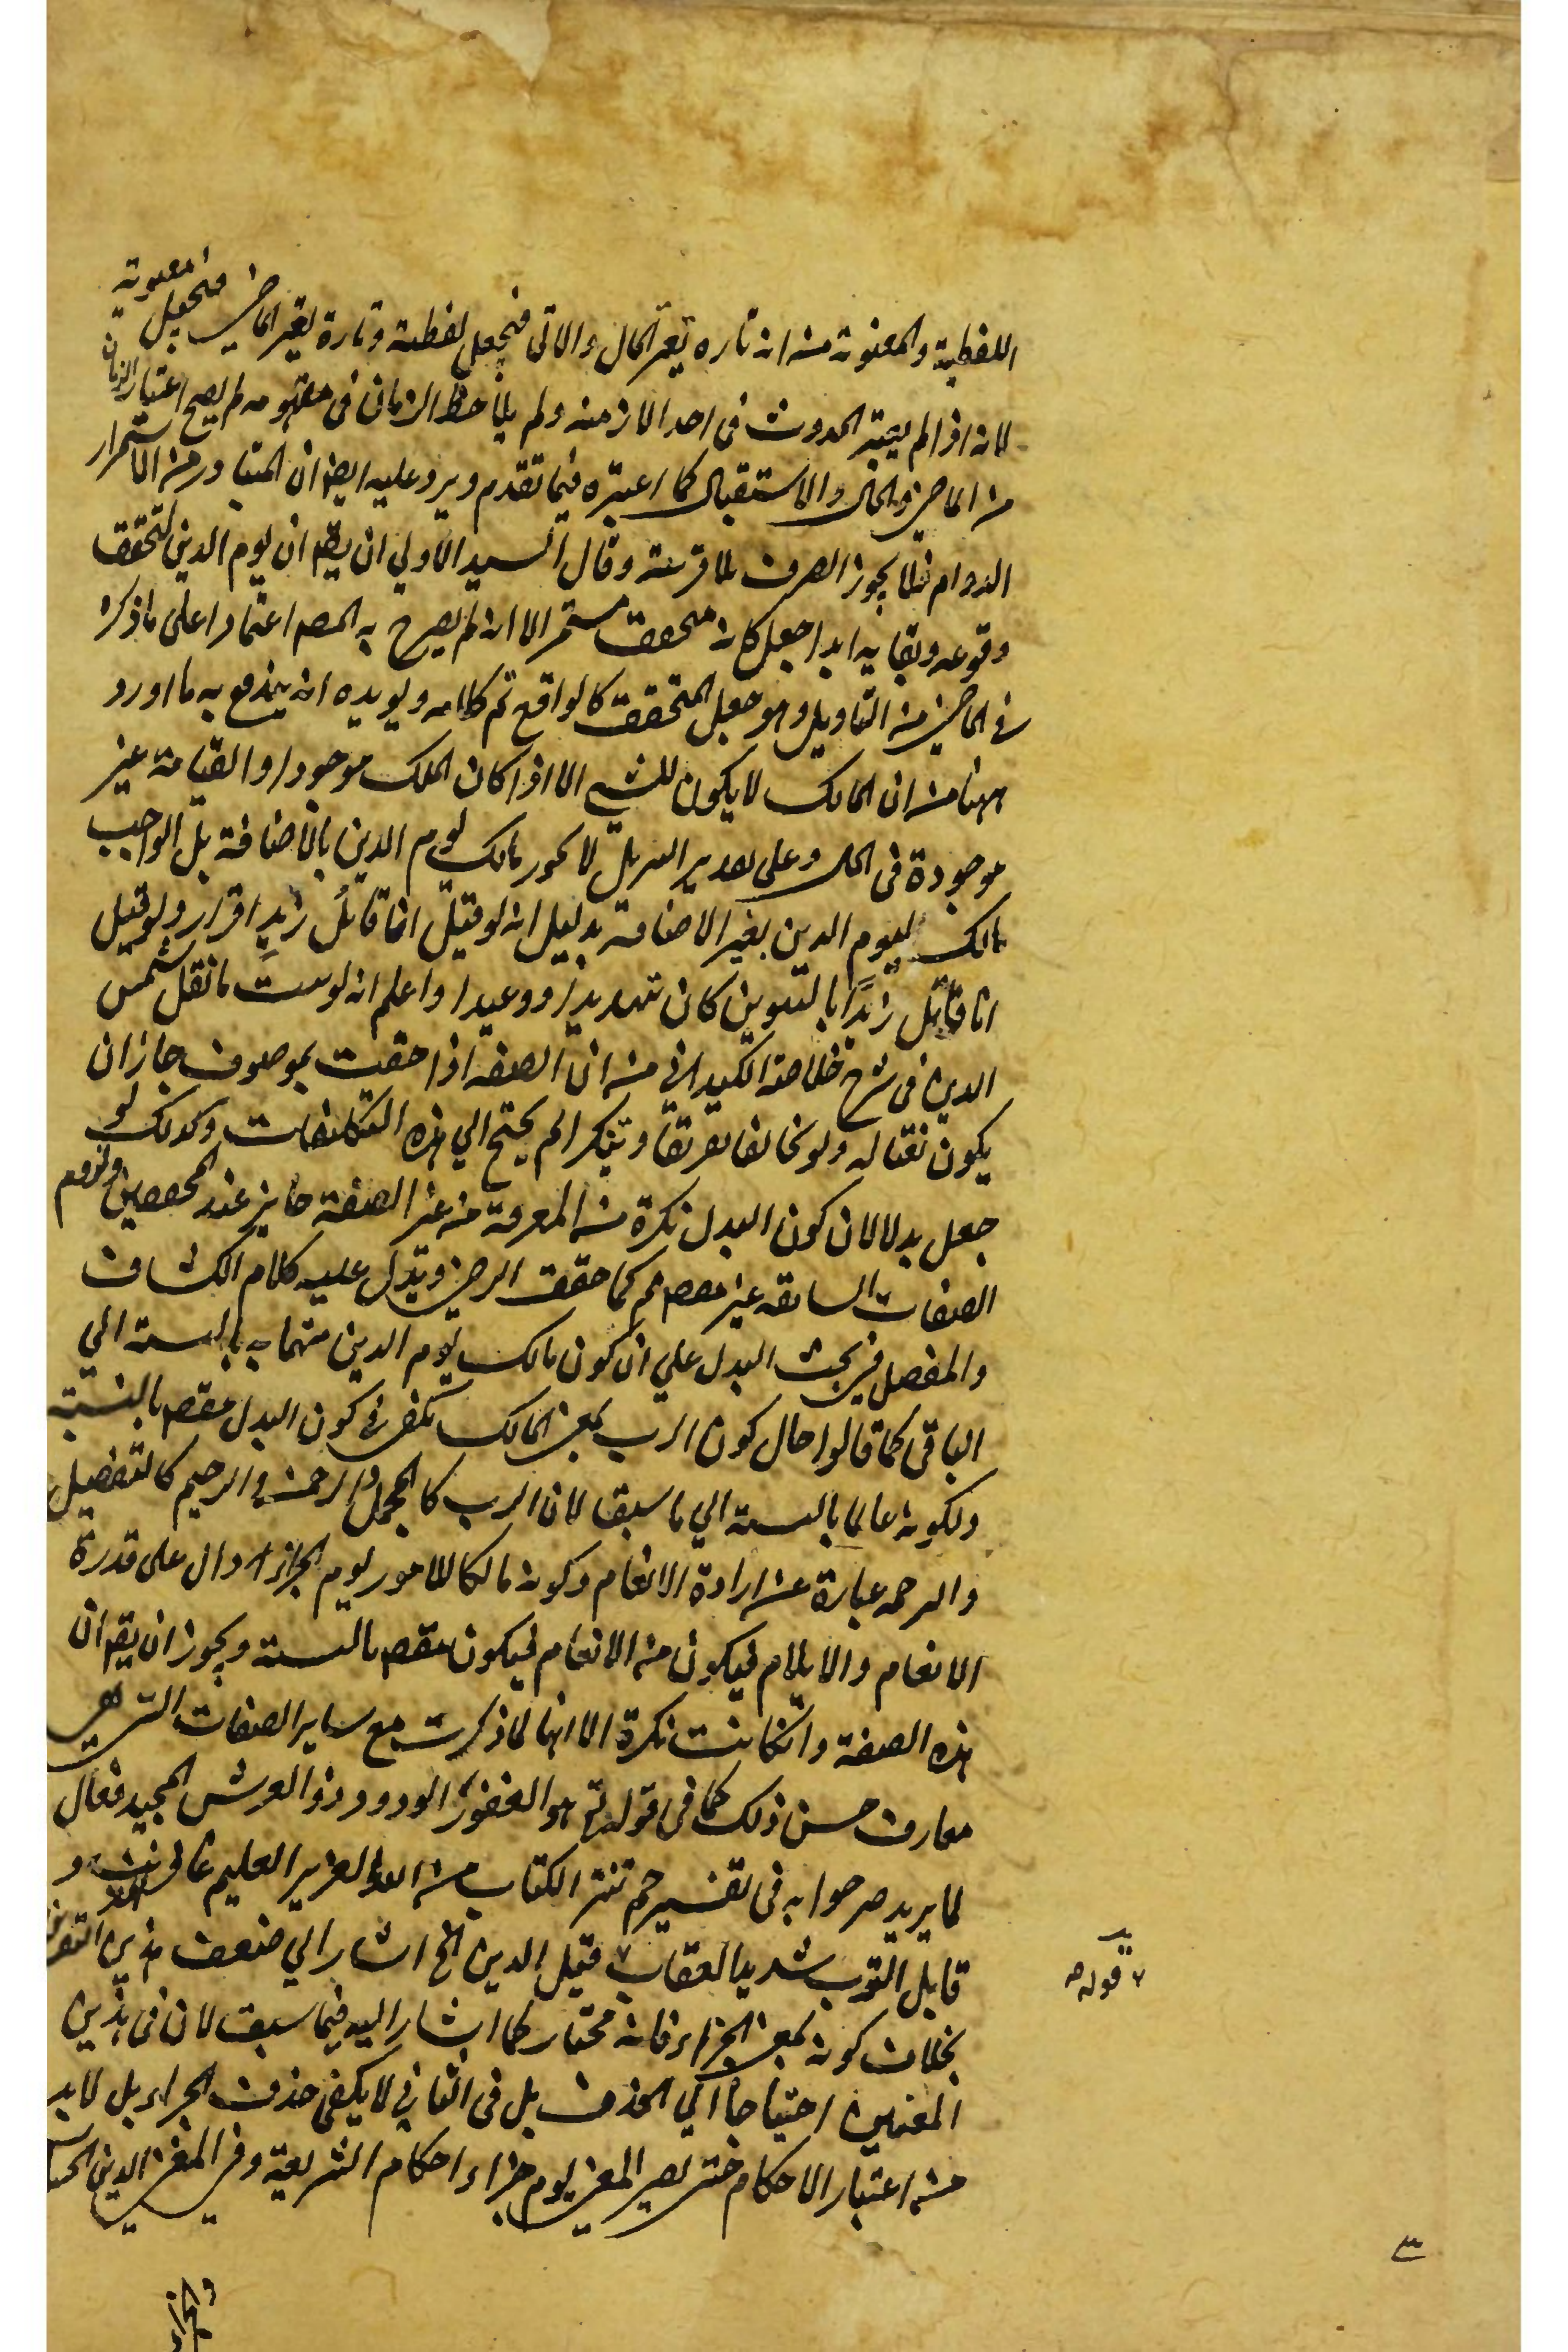 اللفظية والمعنوية من انه تاره يعتبر الحال والاتى فيجعل لفظية وتارة يعتبر الماضى فيجعل معنوية
لانه اذا لم يعتبر الحدوث فى احد الازمنه ولم يلاحظ الزمان فى مفهومه لم يصح اعتبار الزمان
من الماضى والحال والاستقبال كما اعتبره فيما تقدم ويرد عليه ايضا ان المتبادر من الاستمرار
الدوام فلا يجوز الصرف بلا قرينة وقال السيد الاولى ان يقه ان يوم الدين لتحقق
وقوعه وبقايه ابدا جعل كانه متحقق مستمر الا انه لم يصرح به المصه اعتمادا على ما ذكره
فى الماضى من التاويل وهو جعل المتحقق كالواقع تم كلامه ويويده انه يندفع به ما اورد
ههنا من ان المالك لا يكون للشى الا اذا كان الملك موجودا والقيامة غير
موجودة فى الحال وعلى تقدير التنزيل لا يجوز مالك يوم الدين بالاضافة بل الواجب
مالك ليوم الدين بغير الاضافة بدليل انه لو قيل انا قاتلُ زيدٍ اقرار ولو قيل
انا قاتل زيدًا بالتنوين كان تهديدا ووعيدا واعلم انه لو ثبت ما نقل شمس
الدين فى شرح خلاصة الكيدانى من ان الصفه اذا حقت بموصوف جاز ان
يكون نعتا له ولو تخالفا تعريفا وتنكيرا لم يحتج الى هذه التكلفات وكذلك لو
جعل بدلا لان كون البدل نكرة من المعرفة من غير الصفة جايز عند المحققين ولزوم
الصفات السابقه غير مقصود كما حققه الرضى ويدل عليه كلام الكشاف
والمفصل فى بحث البدل على ان كون مالك يوم الدين بالنسبة الى
الباقى كما قالوا حال كون الرب بمعنى المالك يكفى فى كون البدل مقصودا بالنسبة
ولكونه بالنسبة الى ما سبق لان الرب كالمجمل والرحمن والرحيم كالتفصيل
والرحمه عبارة عن ارادة الانعام وكونه مالكا للامور يوم الجزاء دال على قدرة
الانعام والايلام فيكون من الانعام فيكون بالنسبة ويجوز ان يقه ان
هذه الصفة وانكانت نكرة الا انها لما ذكرت مع ساير الصفات التى هى
معارف حسن ذلك كما فى قوله تع هو الغفور الودود ذو العرش المجيد فعال
لما يريد صرحوا به فى تفسير حم تنزيل الكتاب من الله العزيز العليم غافر الذنب و
قابل التوب شديد العقاب قيل الدين الخ اشار الى ضعف هذين
بخلاف كونه بمعنى الجزاء فانه مختار كما اشار اليه فيما سبق لان فى هذين
المعنيين احتياجا الى الحذف بل فى الثانى لا يكفى حذف الجزاء بل لا بد
من اعتبار الاحكام حتى يصير المعنى يوم جزاء احكام الشريعة وفى المغنى الدين
٧ قوله ص
٣